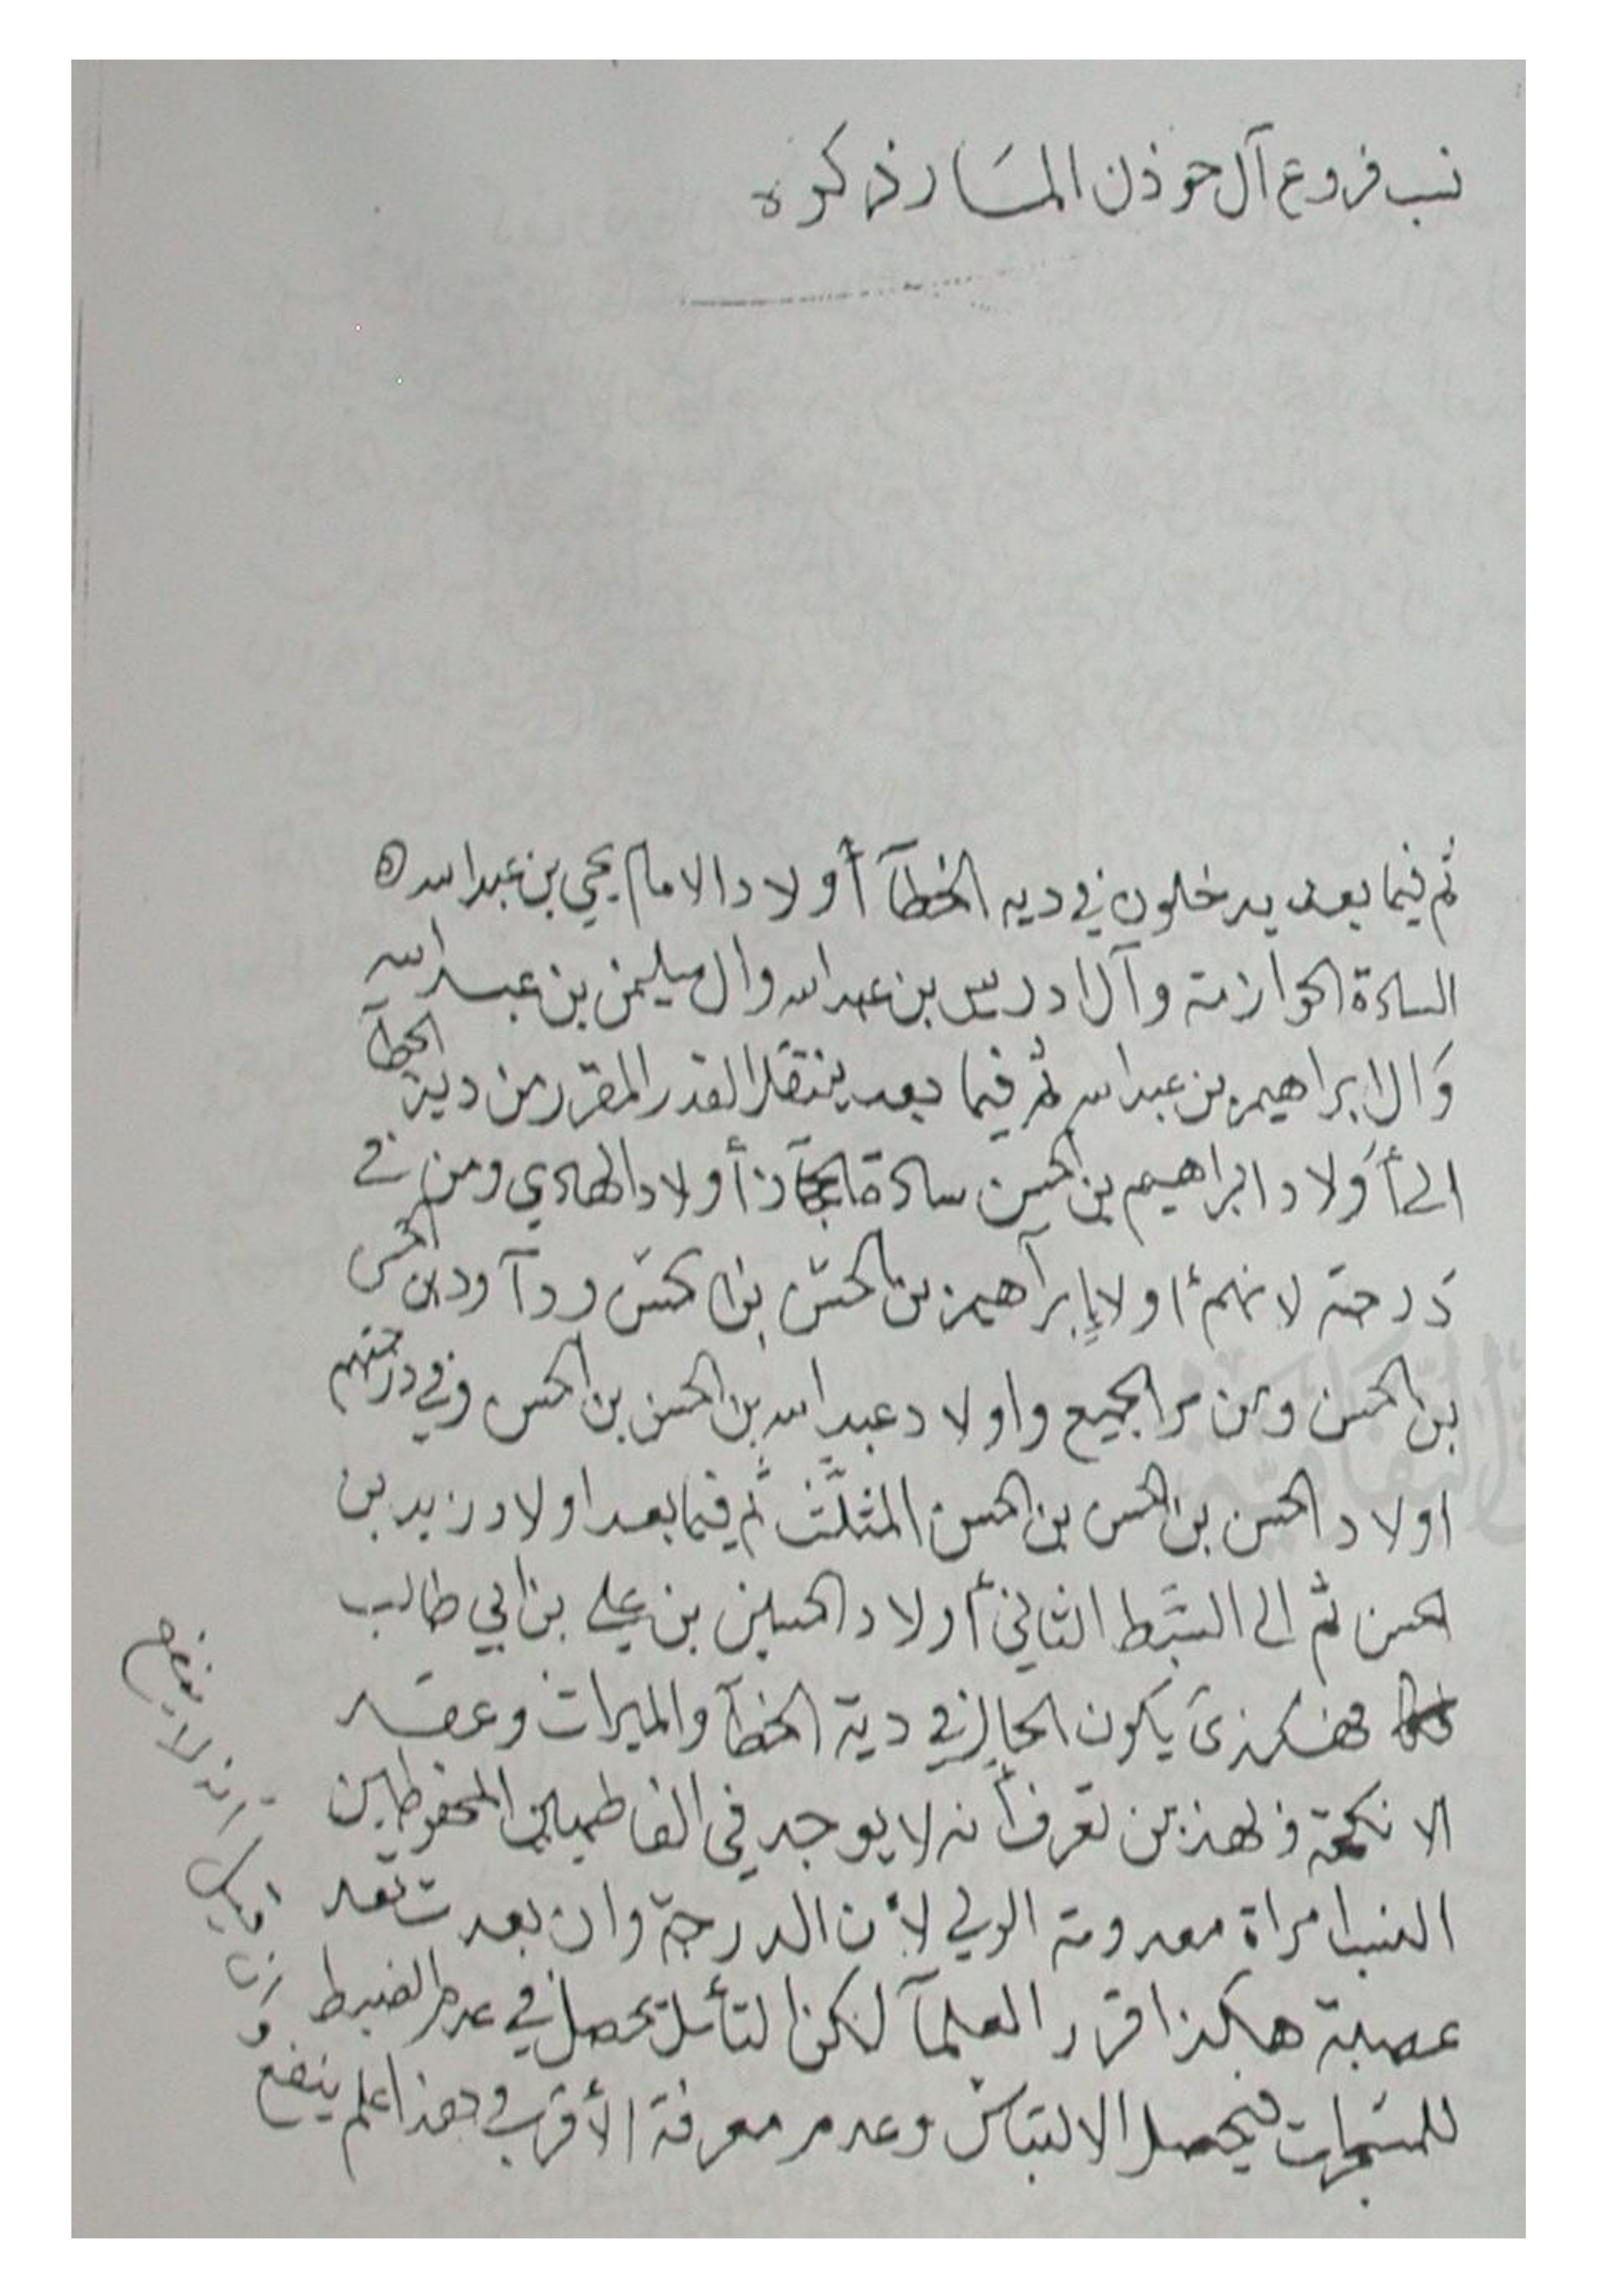 نسب فروع آل حوذن المسار ذكره
ثم فيما بعد يدخلون في ديه الخطآ أولاد الامام يحيى بن عبدالله
السادة الحوازمة وآل ادريس بن عبدالله وال سليمن بن عبدالله
وَال ابراهيم بن عبدالله ثم فيما بعد ينتقل القدر المقرر من دية الخطآ
الى أولاد ابراهيم بن الحسن سادة أولاد الهادي ومن في
درجته لانهم اولاد إبرآهيم بن الحسن بن الحسن ودآود بن الحسن
بن الحسن ومن مر الجميع واولاد عبدالله بن الحسن بن الحسن وفي درجتهم
اولاد الحسن بن الحسن بن الحسن المثلث ثم فيما بعد اولاد زيد بن
الحسن ثم الى السبط الثاني أولاد الحسين بن علي بن ابي طالب
فهكذى يكون الحال في دية الخطآ والميراث وعقد
الانكحة فهذين تعرف أنه لا يوجد في الفاطميين المحفوظين
النسب امراة معدومة الولي لأن الدرجة وان بعدت تعد
عصبة هكذا قرر العلمآ لكن التأمل يحصل في عدم الضبط
للمشجرات فيحصل الالتباس وعدم معرفة الأقرب وهذا علم ينفع
وان قيل انه لا ينفع